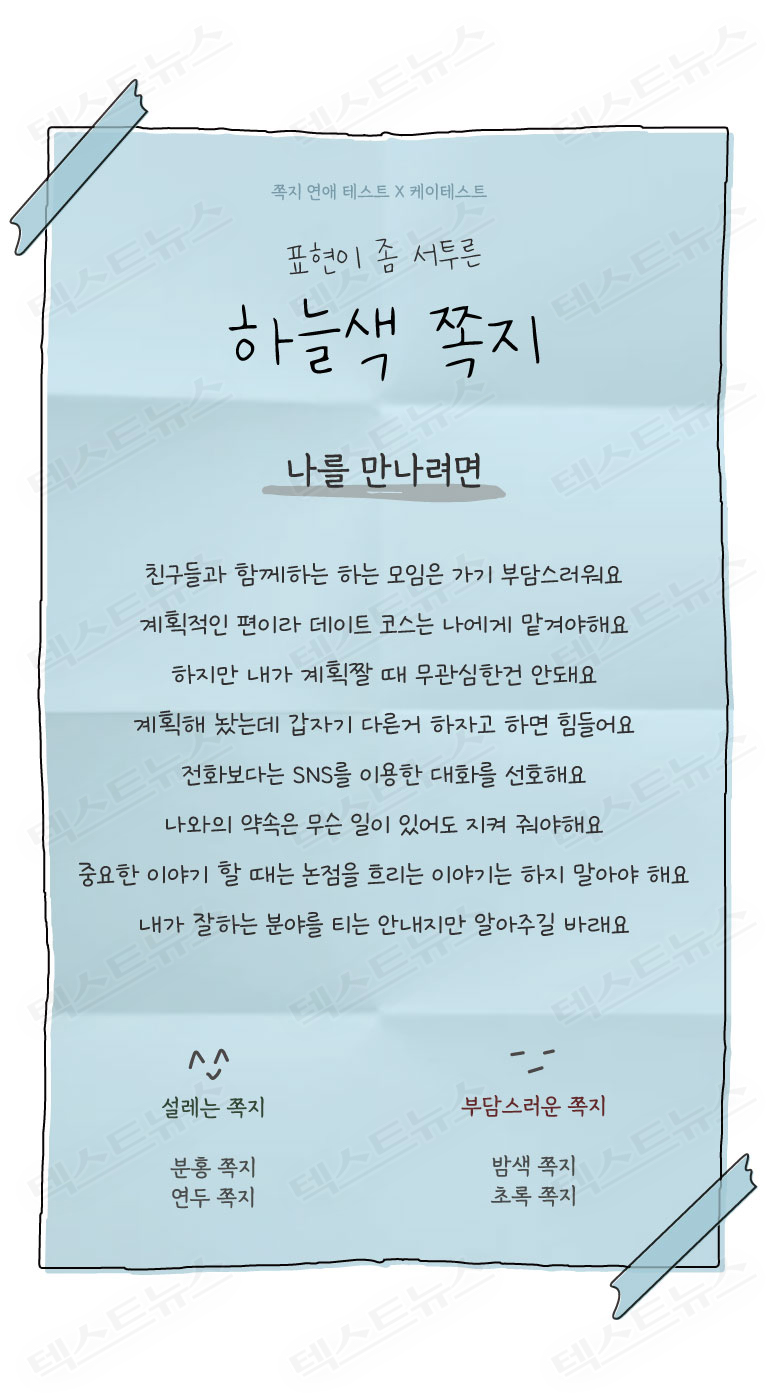 쪽지 연애 테스트 X 케이테스트
표현이 좀 서투른
하늘색 쪽지
나를 만나려면
친구들과 함께하는 하는 모임은 가기 부담스러워요
계획적인 편이라 데이트 코스는 나에게 맡겨야해요
하지만 내가 계획짤 때 무관심한건 안돼요
계획해 놨는데 갑자기 다른거 하자고 하면 힘들어요
전화보다는 SNS를 이용한 대화를 선호해요
나와의 약속은 무슨 일이 있어도 지켜 줘야해요
중요한 이야기 할 때는 논점을 흐리는 이야기는 하지 말아야 해요
내가 잘하는 분야를 티는 안내지만 알아주길 바래요
^^
설레는 쪽지
부담스러운 쪽지
분홍 쪽지
밤색 쪽지
연두 쪽지
초록 쪽지
텍스트뉴스